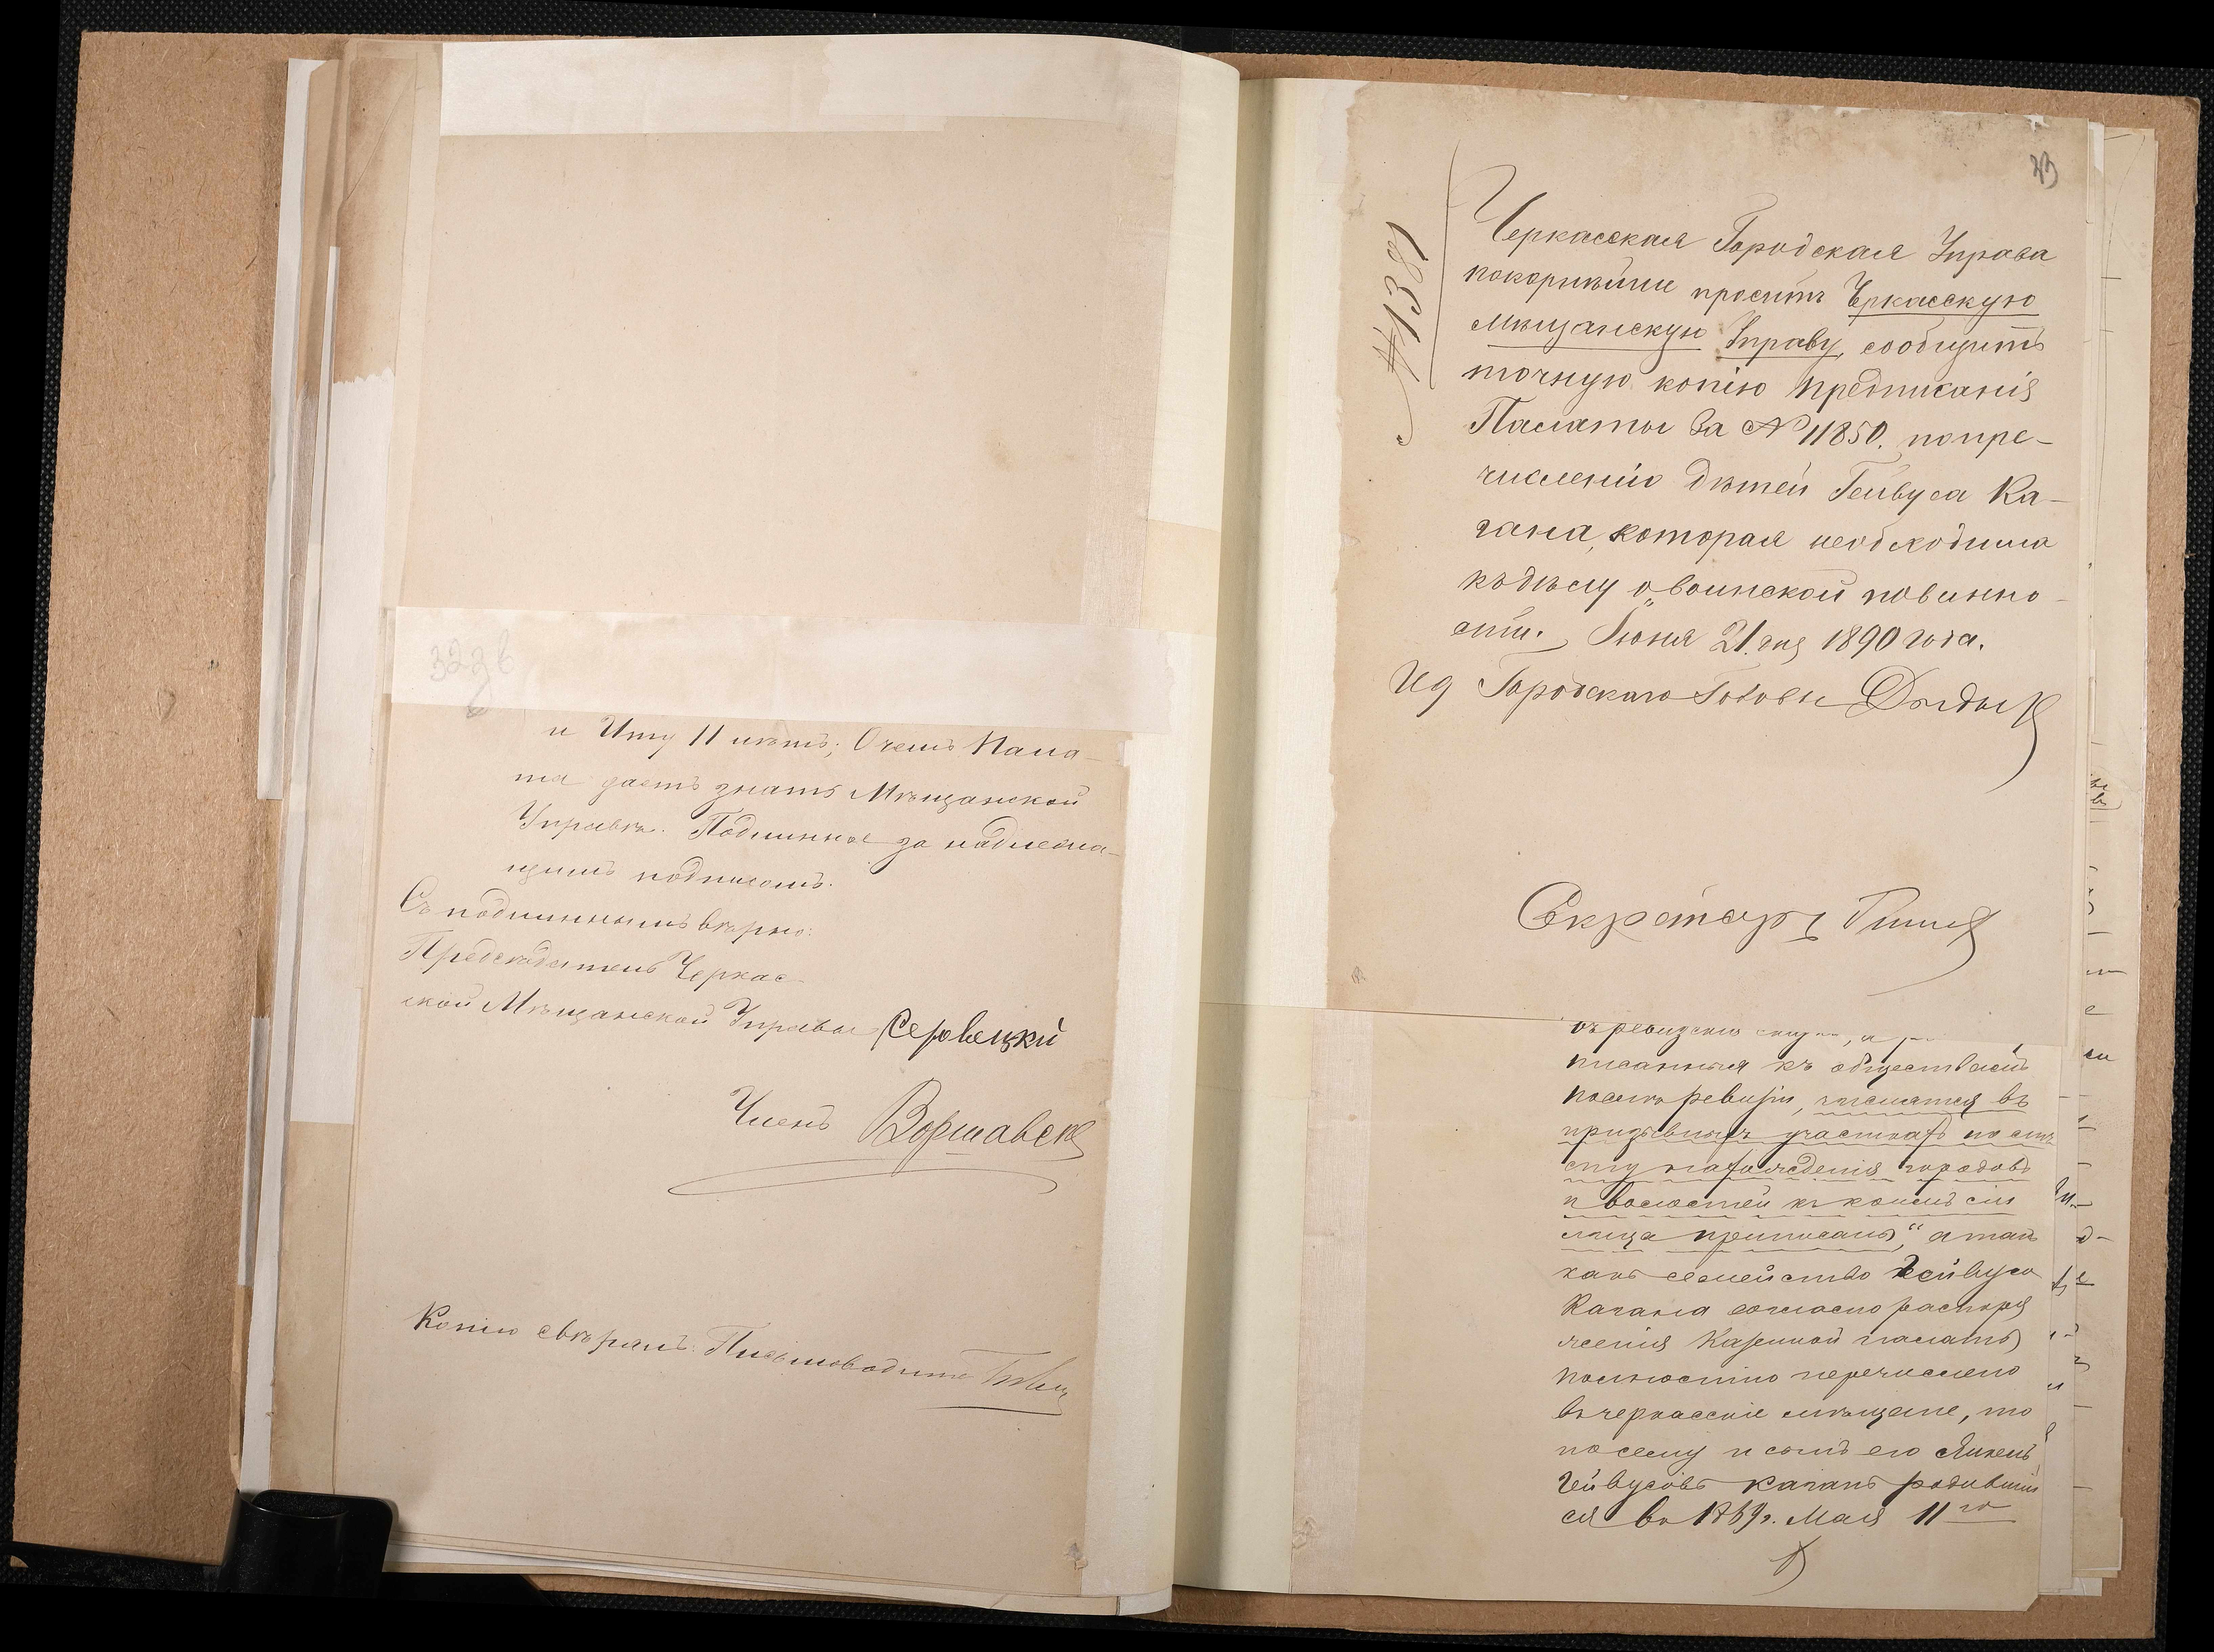 323 в
и Иту 11 лѣтъ; О чемъ Пала-
та даетъ знать Мѣщанской
Управѣ. Подлинное за надлежа-
щимъ подписомъ.
Съ подлиннымъ вѣрно:
Предсѣдатель Черкас-
ской Мѣщанской Управы
Членъ Воршавск
Копію свѣрялъ: Письмоводит
33
№ 1381
Черкасская Городская Управа
покорнѣйше проситъ Черкасскую
Мѣщанскую Управу, сообщить
точную копію предписанія
Палаты за № 11850. по пре-
численію дѣтей Гейвуса Ка-
гана, которая необходима
къ дѣлу о воинской повинно-
сти. Іюня 21 дня 1890 года.
И д Городскаго Головы
Секретарь
въ ревизскія
писанныя къ обществамъ
послѣ ревизіи, числятся въ
призывныхъ участкахъ по мѣ
сту нахожденія городовъ
и волостей къ коимъ сіи
лица приписаны," а такъ
какъ семейство Гейвуса
Кагана согласно распоря
женія Казенной палаты
полностію перечислено
въ черкасскіе мѣщане, то
по сему и сынъ его Янкель
Гейвусовъ Каганъ родивший
ся въ 1869 г. Мая 11го